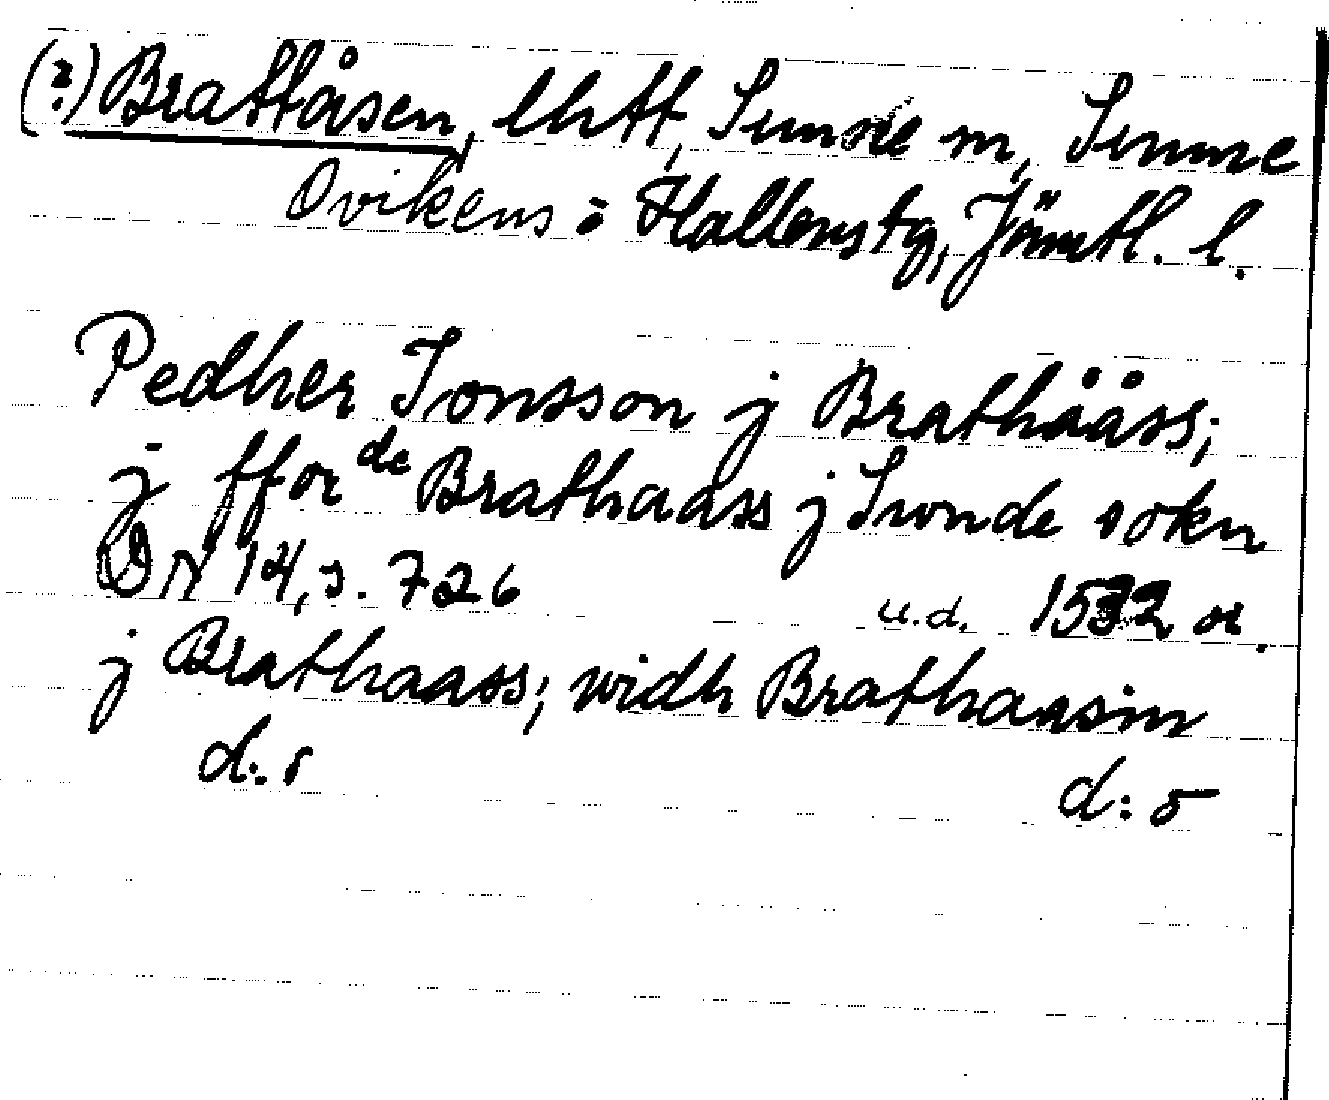 (?) Brattåsen, lhtt, Sunne sn, Sunne
Ovikens o Hallens tg, Jämtl. l.
Pedher Jonsson j Brathååss;
j fforde Brathaass j Swnde sokn
DN 14, s. 726 u.d. 1532 or.
j Brathaass; widh Brathaasin
d:o d:o